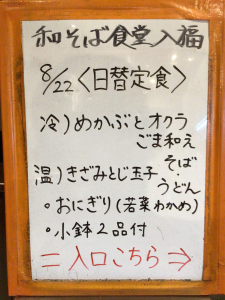 和そば食堂入福
8/22〈日替定食〉
冷)めかぶとオクラ
ごま和え
そば
温)きざみとじ玉子・
うどん
。おにぎり(若菜わかめ)
。小鉢2品付
＝入口こちら⇒